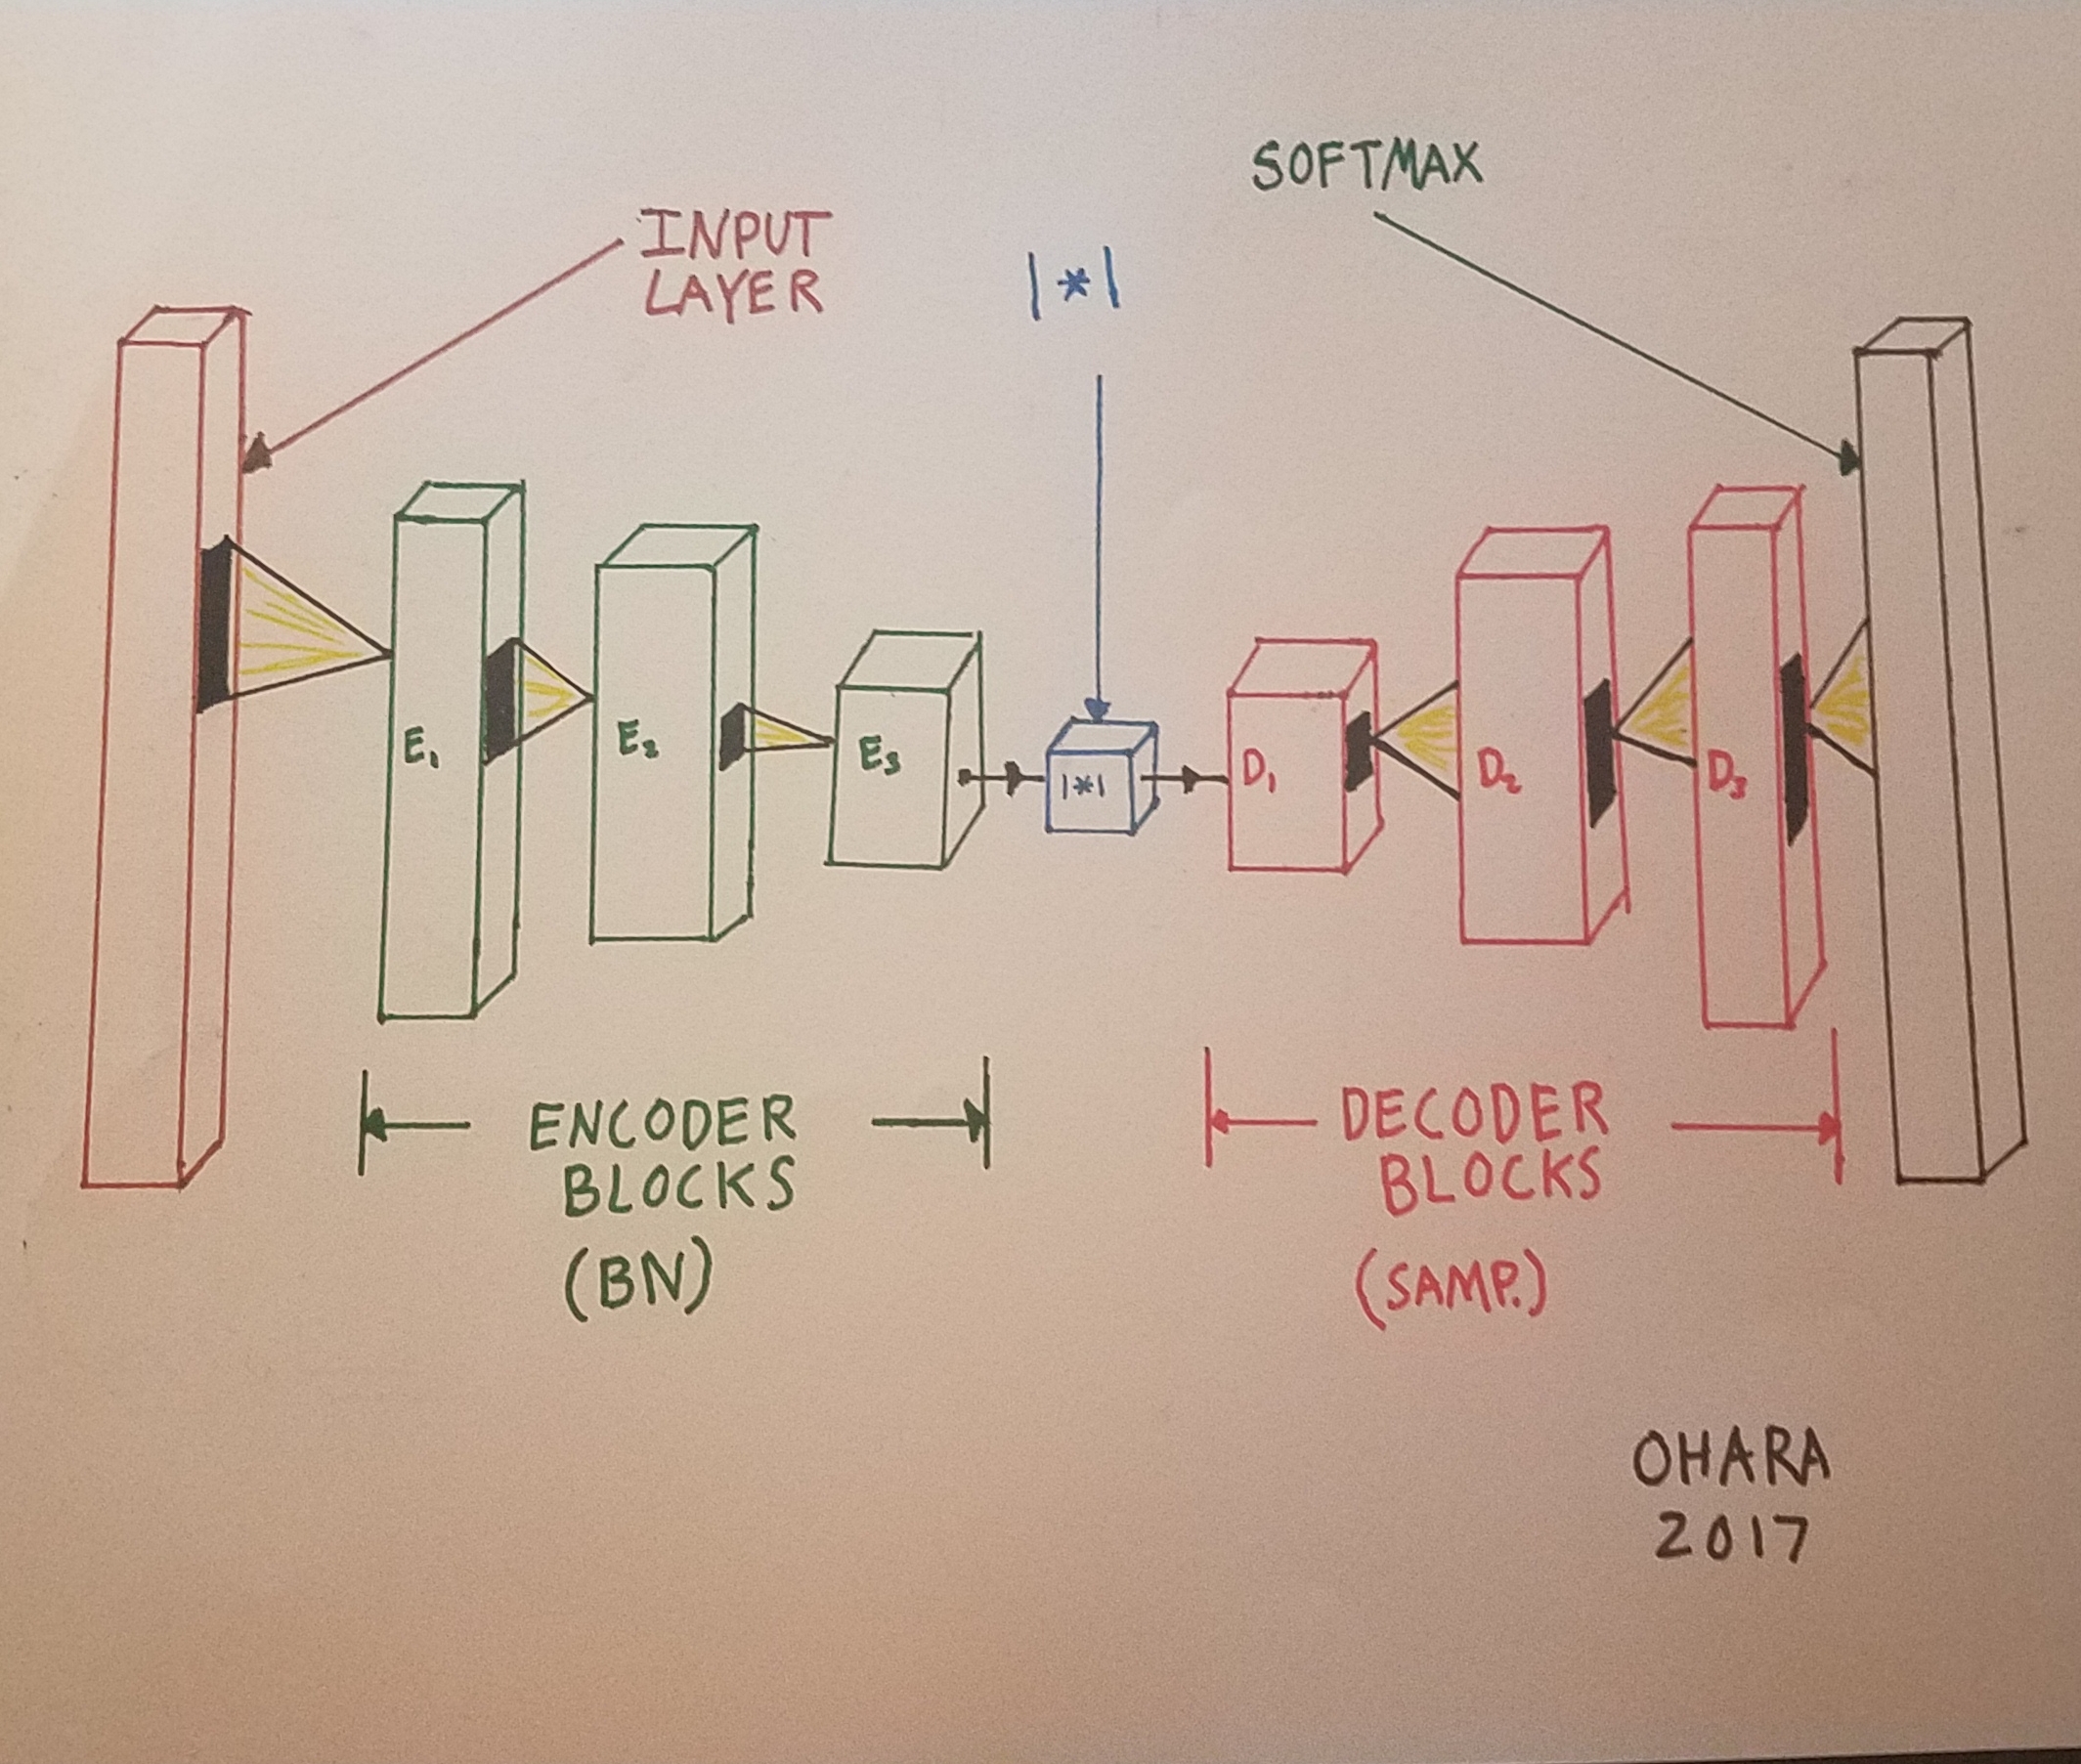 SOFTMAX
INPUT
LAYER
|*|
E₁
E₂
E₃
|*|
D₁
D₂
D₃
ENCODER
BLOCKS
(BN)
DECODER
BLOCKS
(SAMP.)
OHARA
2017